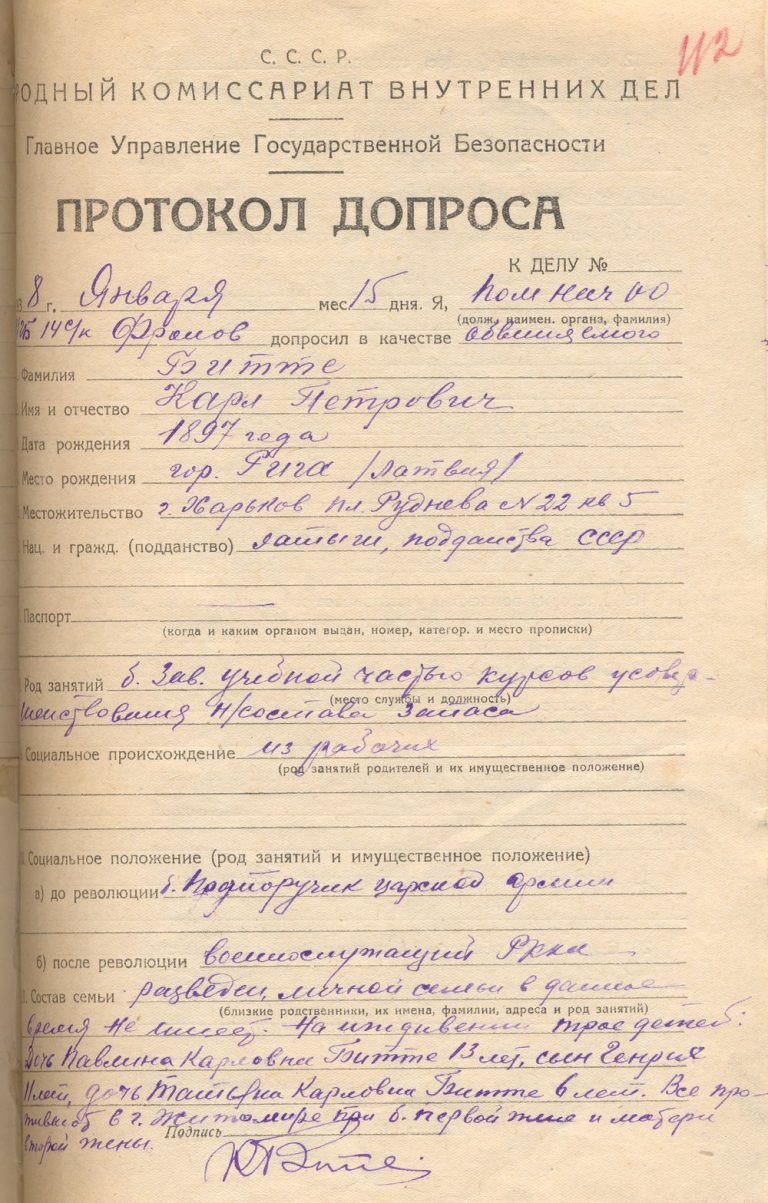 112
С. С. С. Р.
РОДНЫЙ КОМИССАРИАТ ВНУТРЕННИХ ДЕЛ
Главное Управление Государственной Безопасности
ПРОТОКОЛ ДОПРОСА
К ДЕЛУ №
38 г. Января мес 15 дня. Я, Пом Нач ОО
(долж., наимен. органа, фамилия)
ГБ 14 с/к Фролов допросил в качестве обвиняемого
Фамилия Битте
Имя и отчество Карл Петрович
Дата рождения 1897 года
Место рождения гор. Рига /Латвия/
Местожительство г. Харьков пл. Руднева N 22 кв 5
Нац. и гражд. (подданство) латыш, подданства СССР
Паспорт —
(когда и каким органом выдан, номер, категор. и место прописки)
Род занятий б. Зав. учебной частью курсов усовер-
(место службы и должность)
шенствования н/состава запаса
Социальное происхождение из рабочих
(род занятий родителей и их имущественное положение)
Социальное положение (род занятий и имущественное положение)
а) до революции б. Подпоручик царской армии
б) после революции военнослужащий РККА
Состав семьи разведен, личной семьи в данное
(близкие родственники, их имена, фамилии, адреса и род занятий)
время не имеет. На иждивении трое детей:
дочь Павлина Карловна Битте 13 лет, сын Генрих
11 лет, дочь Татьяна Карловна Битте 6 лет. Все про-
живают в г. Житомире при б. первой жене и матери
второй жены.
Подпись
КБитте